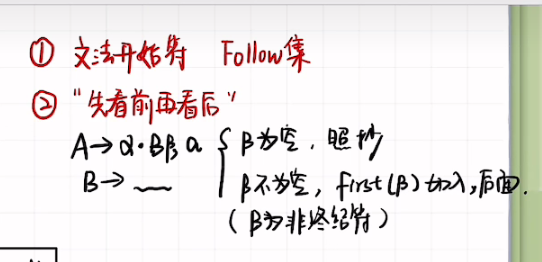 ① 文法开始符 Follow集
② "先看前再看后"
A→α·Bβ, a { β为空, 照抄
B→ β不为空, first(β)加入,后面.
(β为非终结符)